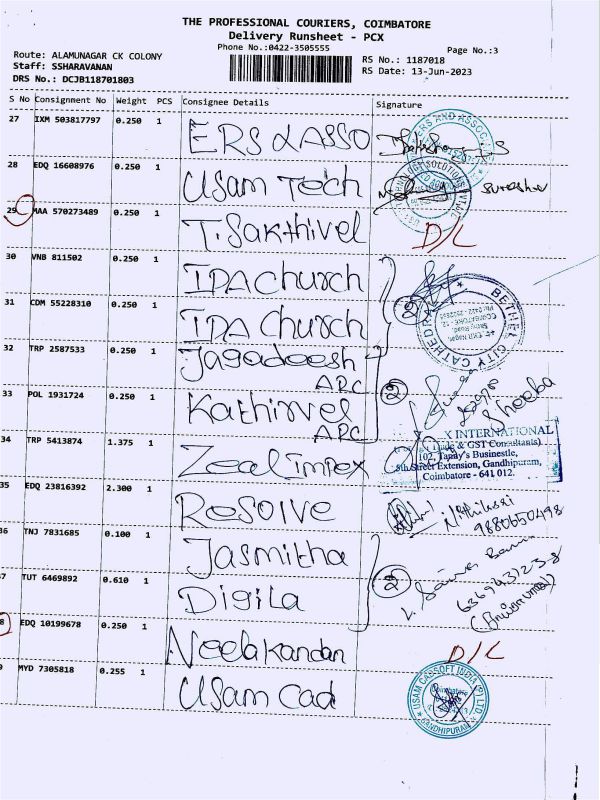 THE PROFESSIONAL COURIERS, COIMBATORE
Delivery Runsheet - PCX
Phone No.:0422-3505555
Page No.:3
Route: ALAMUNAGAR CK COLONY
Staff: SSHARAVANAN
DRS No.: DCJB118701803
RS No.: 1187018
RS Date: 13-Jun-2023
S No Consignment No Weight PCS Consignee Details Signature
27 IXM 503817797 0.250 1 ERS & ASSO
28 EDQ 16608976 0.250 1 Usam Tech Suresh
29 MAA 570273489 0.250 1 T. Sakthivel D/L
30 VNB 811502 0.250 1 IPA Church
31 CDM 55228310 0.250 1 IPA Church
2
BETHEL CITY CATHEDRAL
32 TRP 2587533 0.250 1 Jagadeesh ARC
33 POL 1931724 0.250 1 Kathirvel ARC
2
Sheeba
34 TRP 5413874 1.375 1 Zeal impex
X INTERNATIONAL
& GST Consultants)
102, Tandy's Businestle,
5th Street Extension, Gandhipuram,
Coimbatore - 641 012.
35 EDQ 23816392 2.300 1 Resolve
9880650498
36 TNJ 7831685 0.100 1 Jasmitha
37 TUT 6469892 0.610 1 Digila
2
38 EDQ 10199678 0.250 1 Neelakandan D/L
39 MYD 7305818 0.255 1 Usam Cad
USAM CASSOFT INDIA (P) LTD
GANDHIPURAM